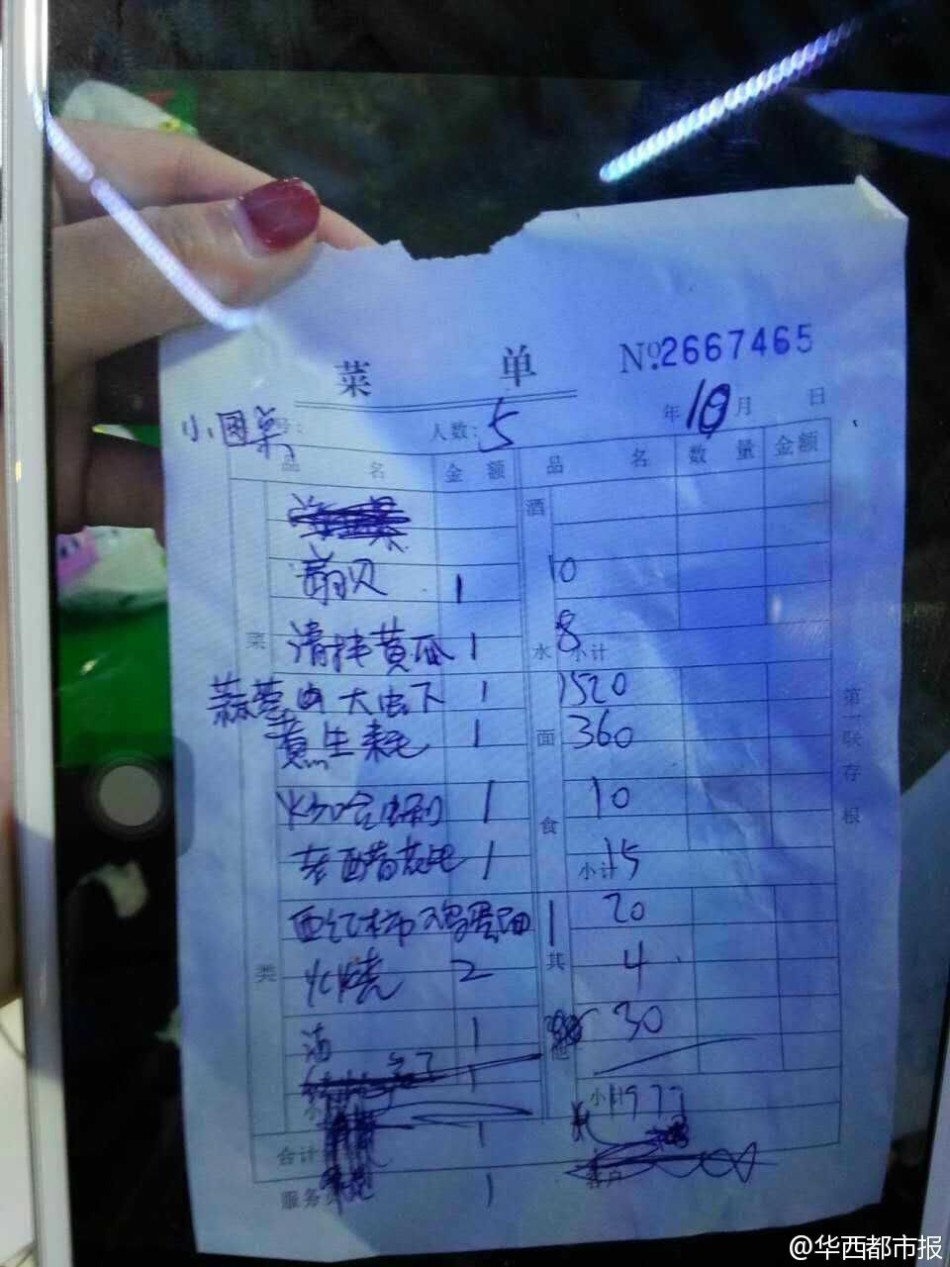 菜 单 №2667465
号: 人数: 5 年 10 月 日
品 名 金 额 品 名 数 量 金额
菜 类
酒 水
扇贝 1 10
清拌黄瓜 1 8
小计
蒜蓉 大虫下 1 1520
生耗 1 360
面 食
哈 1 10
老醋花生 1 15
小计
西红柿鸡蛋 1 20
火烧 2 4
其 他
酒 1 30
小计 1977
合计 1
服务员 1
客户
第一联存根
@华西都市报